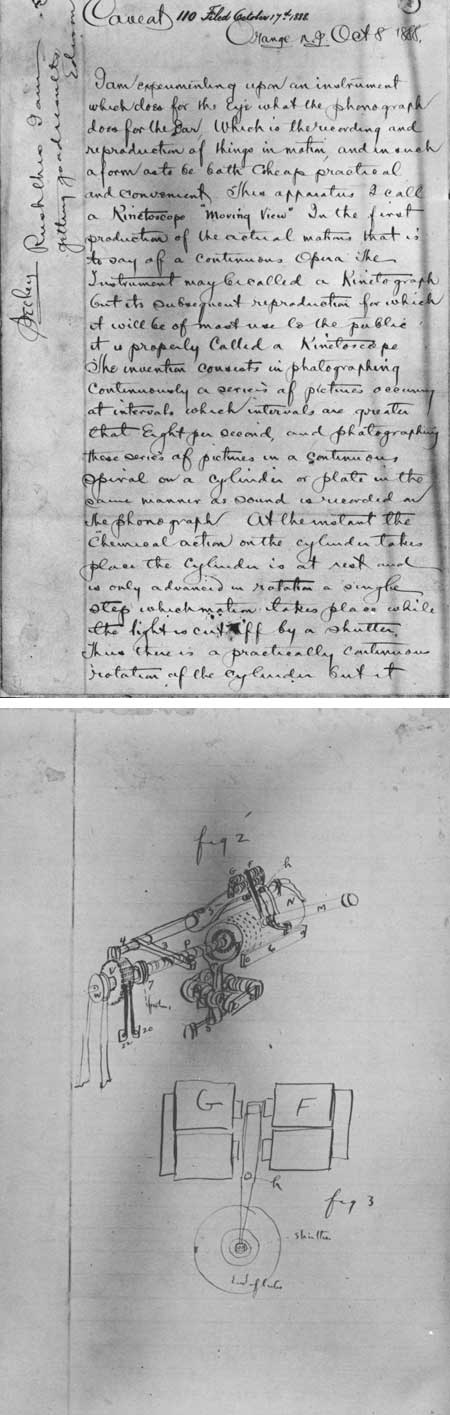 Caveat 110 Filed October 17th 1888.
Orange N.J. Oct 8 1888.
Rush this I am
getting good results
Edison
I am experimenting upon an instrument
which does for the Eye what the phonograph
does for the Ear, Which is the recording and
reproduction of things in motion, and in such
a form as to be both Cheap, practical
and convenient. This apparatus I call
a Kinetoscope "Moving View" In the first
production of the actual motions that is
to say of a continuous Opera the
Instrument may be called a Kinetograph
but its subsequent reproduction for which
it will be of most use to the public
it is properly Called a Kinetoscope
The invention consists in photographing
Continuously a series of pictures occuring
at intervals which intervals are greater
that Eight per second, and photographing
these series of pictures in a continuous
spiral on a cylinder or plate in the
same manner as sound is recorded on
the phonograph At the instant the
Chemical action on the cylinder takes
place the Cylinder is at rest and
is only advanced in rotation a single
step which motion takes place while
the light is cut off by a shutter.
Thus there is a practically continuous
rotation of the cylinder but it
fig 2
G F h
N M
4 3 P 6
7
22 20
G F
h
fig 3
shutter